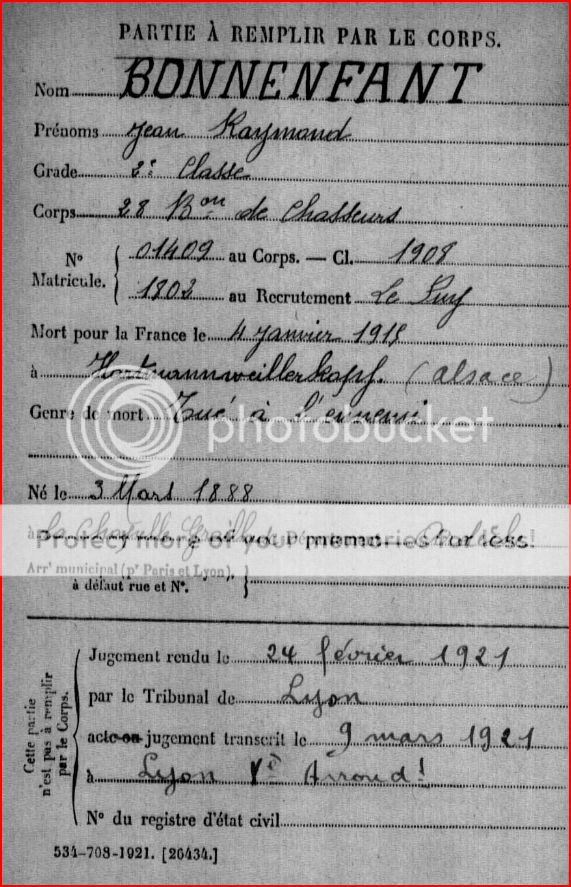 PARTIE À REMPLIR PAR LE CORPS.
Nom BONNENFANT
Prénoms Jean Raymond
Grade 2e Classe
Corps 28 Bon de Chasseurs
N° Matricule. { 01409 au Corps. — Cl. 1908
1802 au Recrutement Le Puy
Mort pour la France le 4 Janvier 1915
à Hartmannweillerkopf. (alsace)
Genre de mort Tué à l'ennemi
photobucket
Né le 3 Mars 1888
à La Département
Protect more of your memories for less!
Arrt municipal (pr Paris et Lyon),
à défaut rue et N°.
Cette partie n'est pas à remplir par le Corps.
Jugement rendu le 24 février 1921
par le Tribunal de Lyon
acte ou jugement transcrit le 9 mars 1921
à Lyon Ve Arrondt
N° du registre d'état civil
534-708-1921. [26434.]